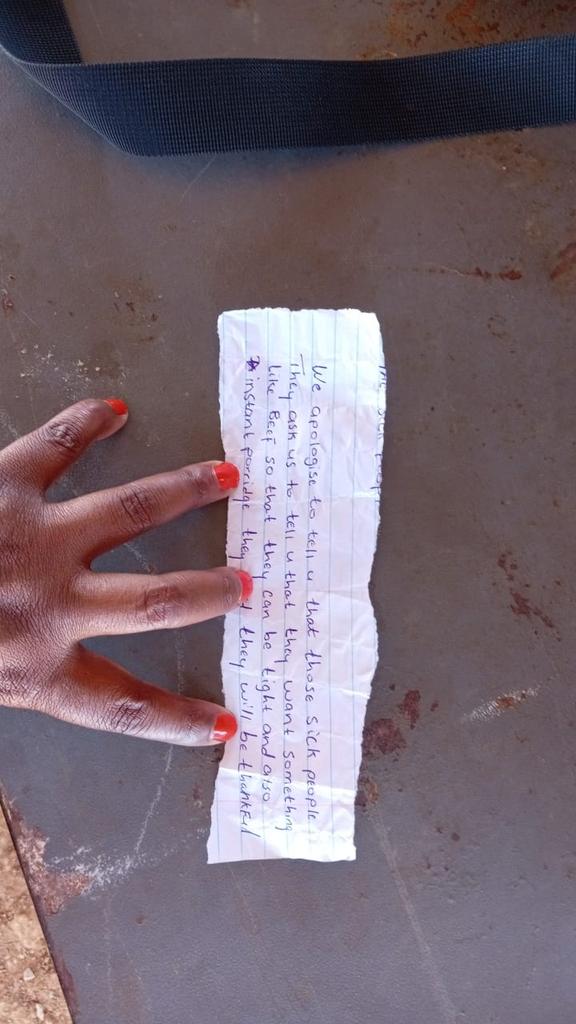 We apologise to tell u that those sick people
They ask us to tell u that they want something
like Beef so that they can be tight and also
instant porridge they they will be thankful